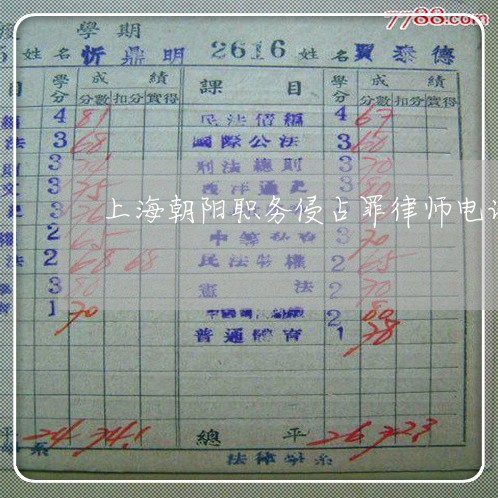 7788.com
學期
5 姓名 忻鼎明 2616 姓名 賈泰德
目 學分 成績 課目 學分 成績
分數 扣分 實得 分數 扣分 實得
4 81 民法債編 4 67
法 3 68 國際公法 3 60
3 刑法總則 3 70
3 75 西洋通史 3 80
3 76
上海朝阳职务侵占罪律师电
2 65 3 70
法 2 68 68 民法物權 2 65
3 80 憲法 2 70
1 70 2 80
普通體育 1 78
平 24 74.1 總平 26 72.3
系 法律學系